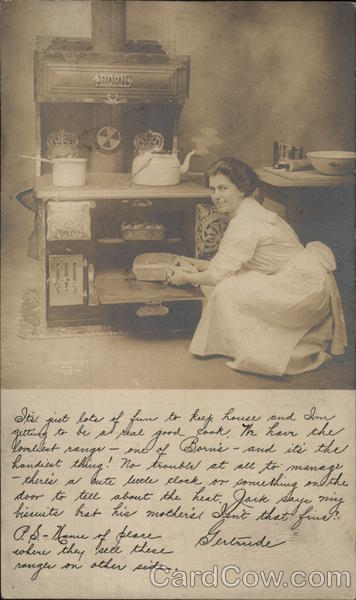 BORN
It's just lots of fun to keep house and I'm
getting to be a real good cook. We have the
loveliest range - one of Born's - and it's the
handiest thing! No trouble at all to manage
- there's a cute little clock or something on the
door to tell about the heat. Jack says my
biscuits beat his mother's! Isn't that fine?
P.S. - Name of place
where they sell these
ranges on other side.
Gertrude
CardCow.com®